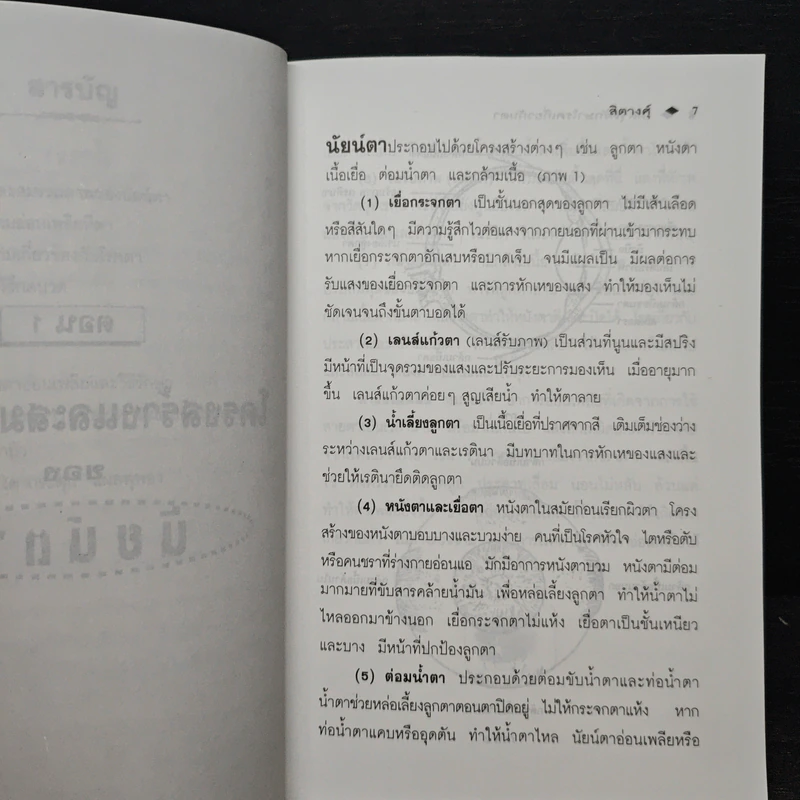 สิตางศุ์ ◆ 7
นัยน์ตาประกอบไปด้วยโครงสร้างต่างๆ เช่น ลูกตา หนังตา
เนื้อเยื่อ ต่อมน้ำตา และกล้ามเนื้อ (ภาพ 1)
(1) เยื่อกระจกตา เป็นชั้นนอกสุดของลูกตา ไม่มีเส้นเลือด
หรือสีสันใดๆ มีความรู้สึกไวต่อแสงจากภายนอกที่ผ่านเข้ามากระทบ
หากเยื่อกระจกตาอักเสบหรือบาดเจ็บ จนมีแผลเป็น มีผลต่อการ
รับแสงของเยื่อกระจกตา และการหักเหของแสง ทำให้มองเห็นไม่
ชัดเจนจนถึงขั้นตาบอดได้
(2) เลนส์แก้วตา (เลนส์รับภาพ) เป็นส่วนที่นูนและมีสปริง
มีหน้าที่เป็นจุดรวมของแสงและปรับระยะการมองเห็น เมื่ออายุมาก
ขึ้น เลนส์แก้วตาค่อยๆ สูญเสียน้ำ ทำให้ตาลาย
(3) น้ำเลี้ยงลูกตา เป็นเนื้อเยื่อที่ปราศจากสี เติมเต็มช่องว่าง
ระหว่างเลนส์แก้วตาและเรตินา มีบทบาทในการหักเหของแสงและ
ช่วยให้เรตินายึดติดลูกตา
(4) หนังตาและเยื่อตา หนังตาในสมัยก่อนเรียกผิวตา โครง
สร้างของหนังตาบอบบางและบวมง่าย คนที่เป็นโรคหัวใจ ไตหรือตับ
หรือคนชราที่ร่างกายอ่อนแอ มักมีอาการหนังตาบวม หนังตามีต่อม
มากมายที่ขับสารคล้ายน้ำมัน เพื่อหล่อเลี้ยงลูกตา ทำให้น้ำตาไม่
ไหลออกมาข้างนอก เยื่อกระจกตาไม่แห้ง เยื่อตาเป็นชั้นเหนียว
และบาง มีหน้าที่ปกป้องลูกตา
(5) ต่อมน้ำตา ประกอบด้วยต่อมขับน้ำตาและท่อน้ำตา
น้ำตาช่วยหล่อเลี้ยงลูกตาตอนตาปิดอยู่ ไม่ให้กระจกตาแห้ง หาก
ท่อน้ำตาแคบหรืออุดตัน ทำให้น้ำตาไหล นัยน์ตาอ่อนเพลียหรือ